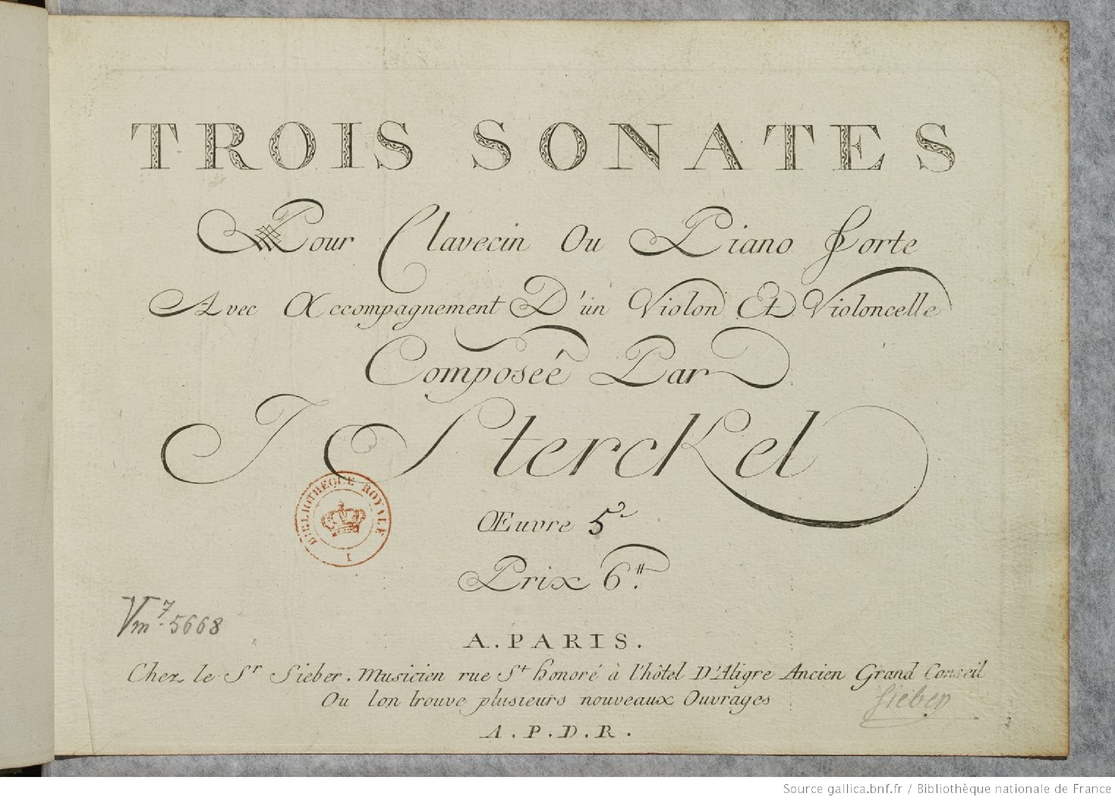 TROIS SONATES
Pour Clavecin Ou Piano Forte
Avec Accompagnement D'un Violon Et Violoncelle
Composeé Par
J Sterckel
Œuvre 5e
Prix 6₶.
BIBLIOTHEQUE ROYALE
I
Vm7. 5668
A. PARIS.
Chez le Sr Sieber. Musicien rue St honoré à l'hôtel D'Aligre Ancien Grand Conseil
Ou lon trouve plusieurs nouveaux Ouvrages
Sieber
A. P. D. R.
Source gallica.bnf.fr / Bibliothèque nationale de France